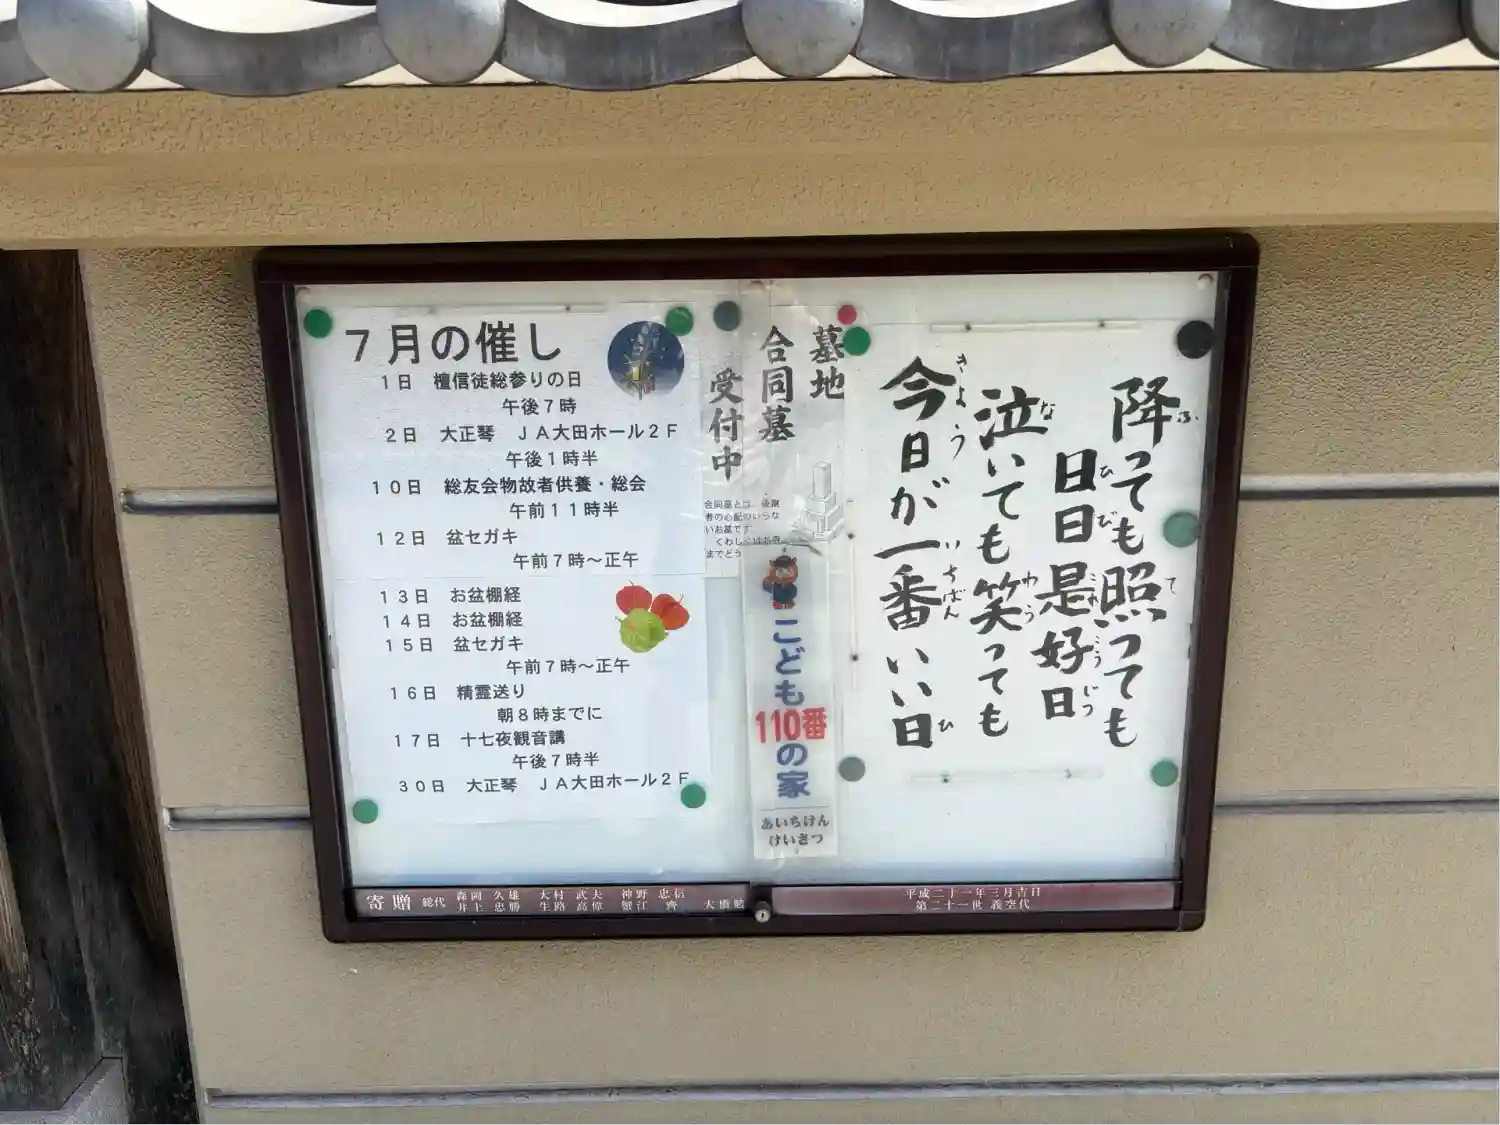 7月の催し
1日 檀信徒総参りの日
午後7時
2日 大正琴 JA大田ホール2F
午後1時半
10日 総友会物故者供養・総会
午前11時半
12日 盆セガキ
午前7時～正午
13日 お盆棚経
14日 お盆棚経
15日 盆セガキ
午前7時～正午
16日 精霊送り
朝8時までに
17日 十七夜観音講
午後7時半
30日 大正琴 JA大田ホール2F
墓地
合同墓
受付中
合同墓とは、後継
者の心配のいらな
いお墓です
くわしくは
までどう
こども
110番
の家
あいちけん
けいさつ
降っても照っても
ふ て
日日是好日
ひび これ こうじつ
泣いても笑っても
な わら
今日が一番いい日
きょう いちばん ひ
寄贈 総代 森岡 久雄 大村 武夫 神野 忠信
井上 忠勝 生路 高偉 蟹江 齊 大橋
平成二十一年三月吉日
第二十一世 義空代